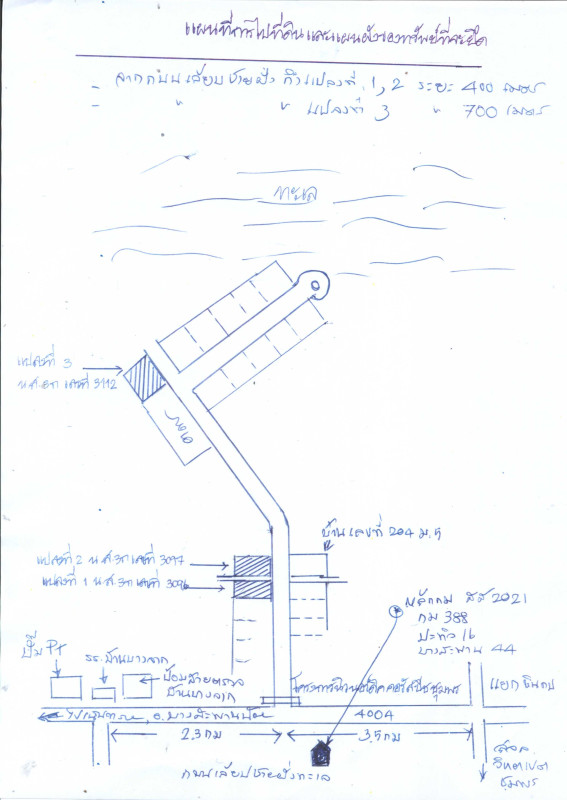 แผนที่การไปที่ดินและแผนผังของทรัพย์ที่จะยึด
- จากถนนเลียบชายฝั่ง ถึงแปลงที่ 1, 2 ระยะ 400 เมตร
- " " แปลงที่ 3 " 700 เมตร
ทะเล
แปลงที่ 3
น.ส.3ก เลขที่ 3112
บ้านเลขที่ 204 ม.5
แปลงที่ 2 น.ส.3ก เลขที่ 3097
แปลงที่ 1 น.ส.3ก เลขที่ 3096
หลักกม สส 2021
กม 388
ปะทิว 16
บางสะพาน 44
ปั๊ม PT
รร.บ้านบางจาก
ป้อมสายตรวจ
บ้านบางจาก
แยก
อ.บางสะพานน้อย
4004
2.3 กม
3.5 กม
ถนนเลียบชายฝั่งทะเล
วิทยาเขต
ชุมพร